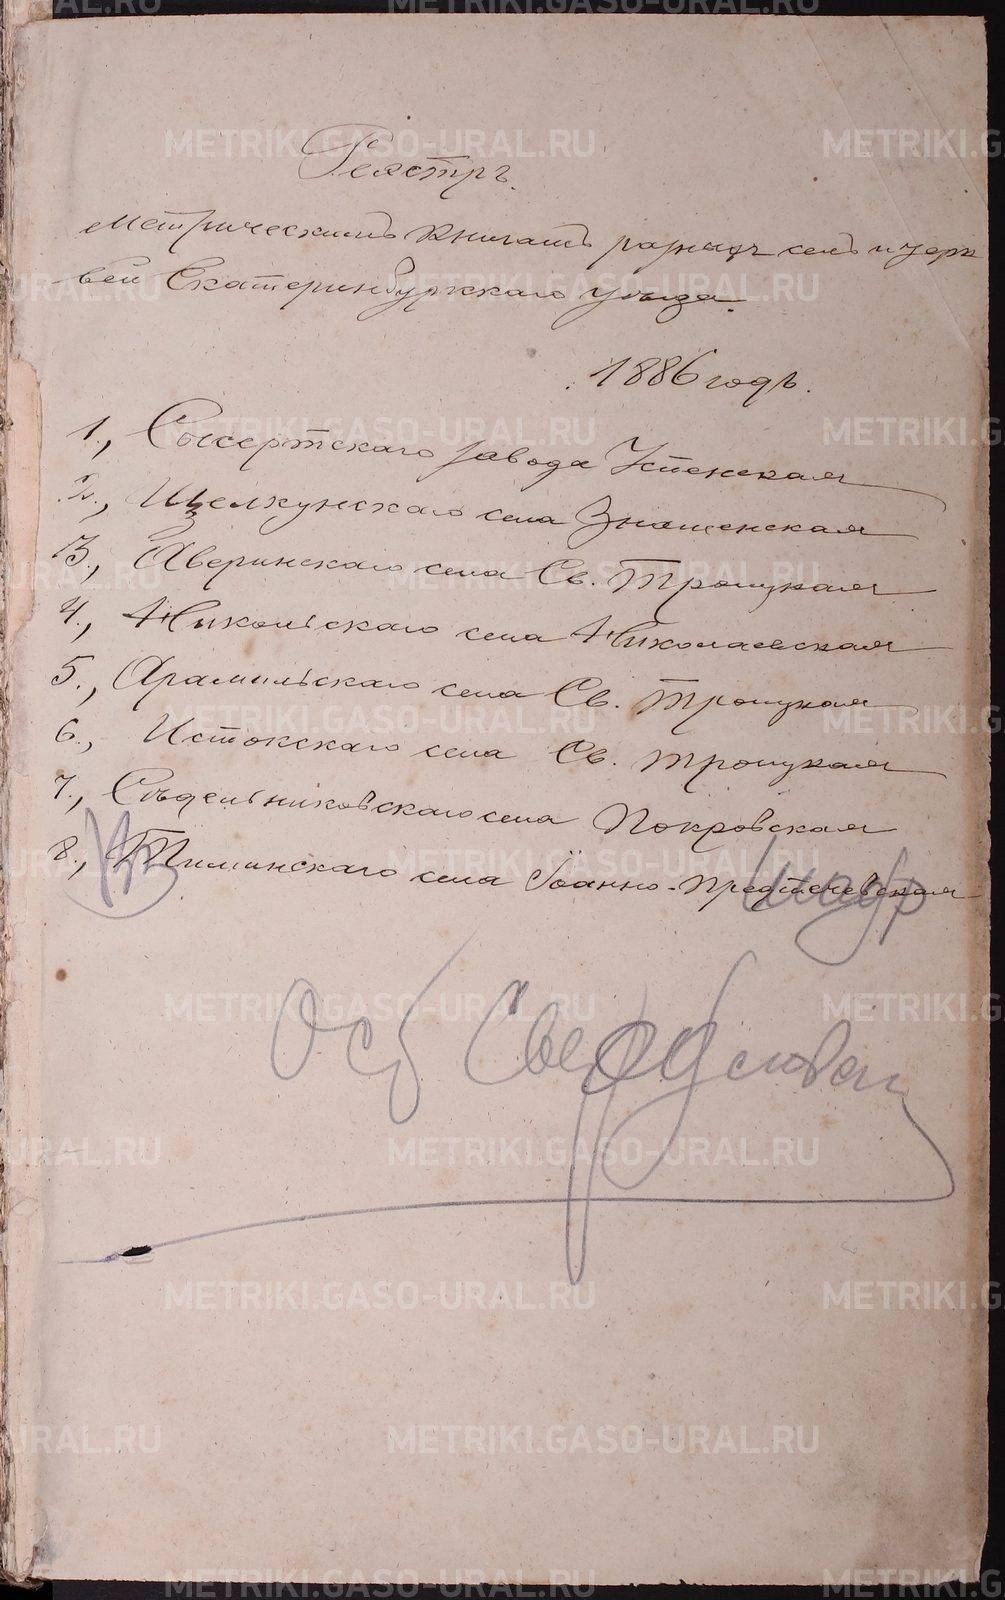 Реестръ.
Метрическимъ книгамъ разныхъ селъ и церк
вей Екатеринбургскаго уѣзда.
1886 годъ.
1., Сысертскаго завода Успенская
2., Щелкунскаго села Знаменская
3., Аверинскаго села Св. Троицкая
4., Никольскаго села Николаевская
5., Арамильскаго села Св. Троицкая
6., Истокскаго села Св. Троицкая
7., Сѣдельниковскаго села Покровская
8., Тиминскаго села Іоанно-Предтечевская
METRIKI.GASO-URAL.RU